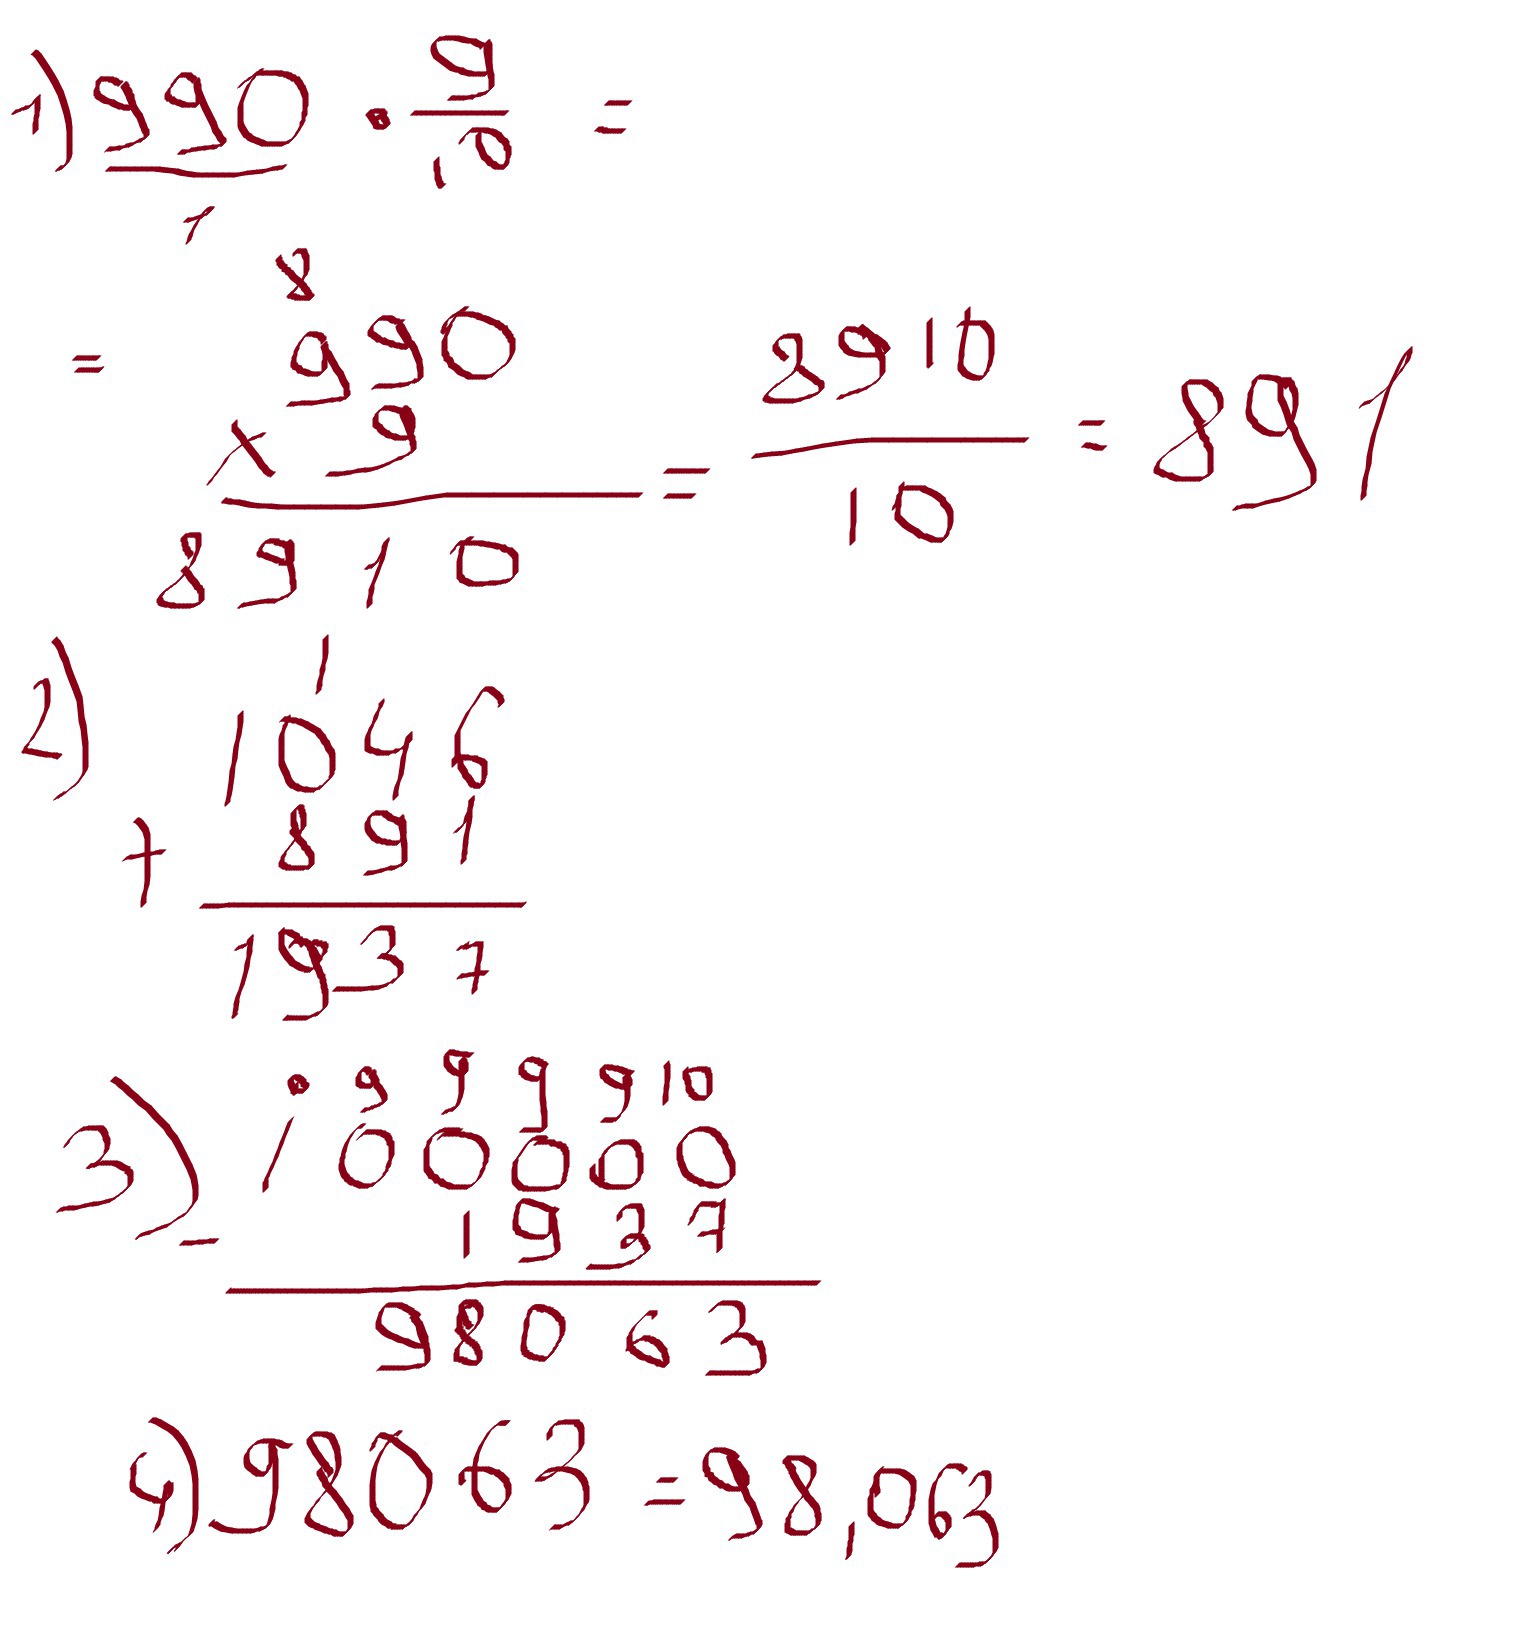 1) 990/1 · 9/10 =
8
= 990
x 9 = 8910/10 = 891
8910
1
2) 1046
+ 891
1937
. 9 9 9 9 10
3) 100000
- 1937
98063
4) 98063 = 98,063